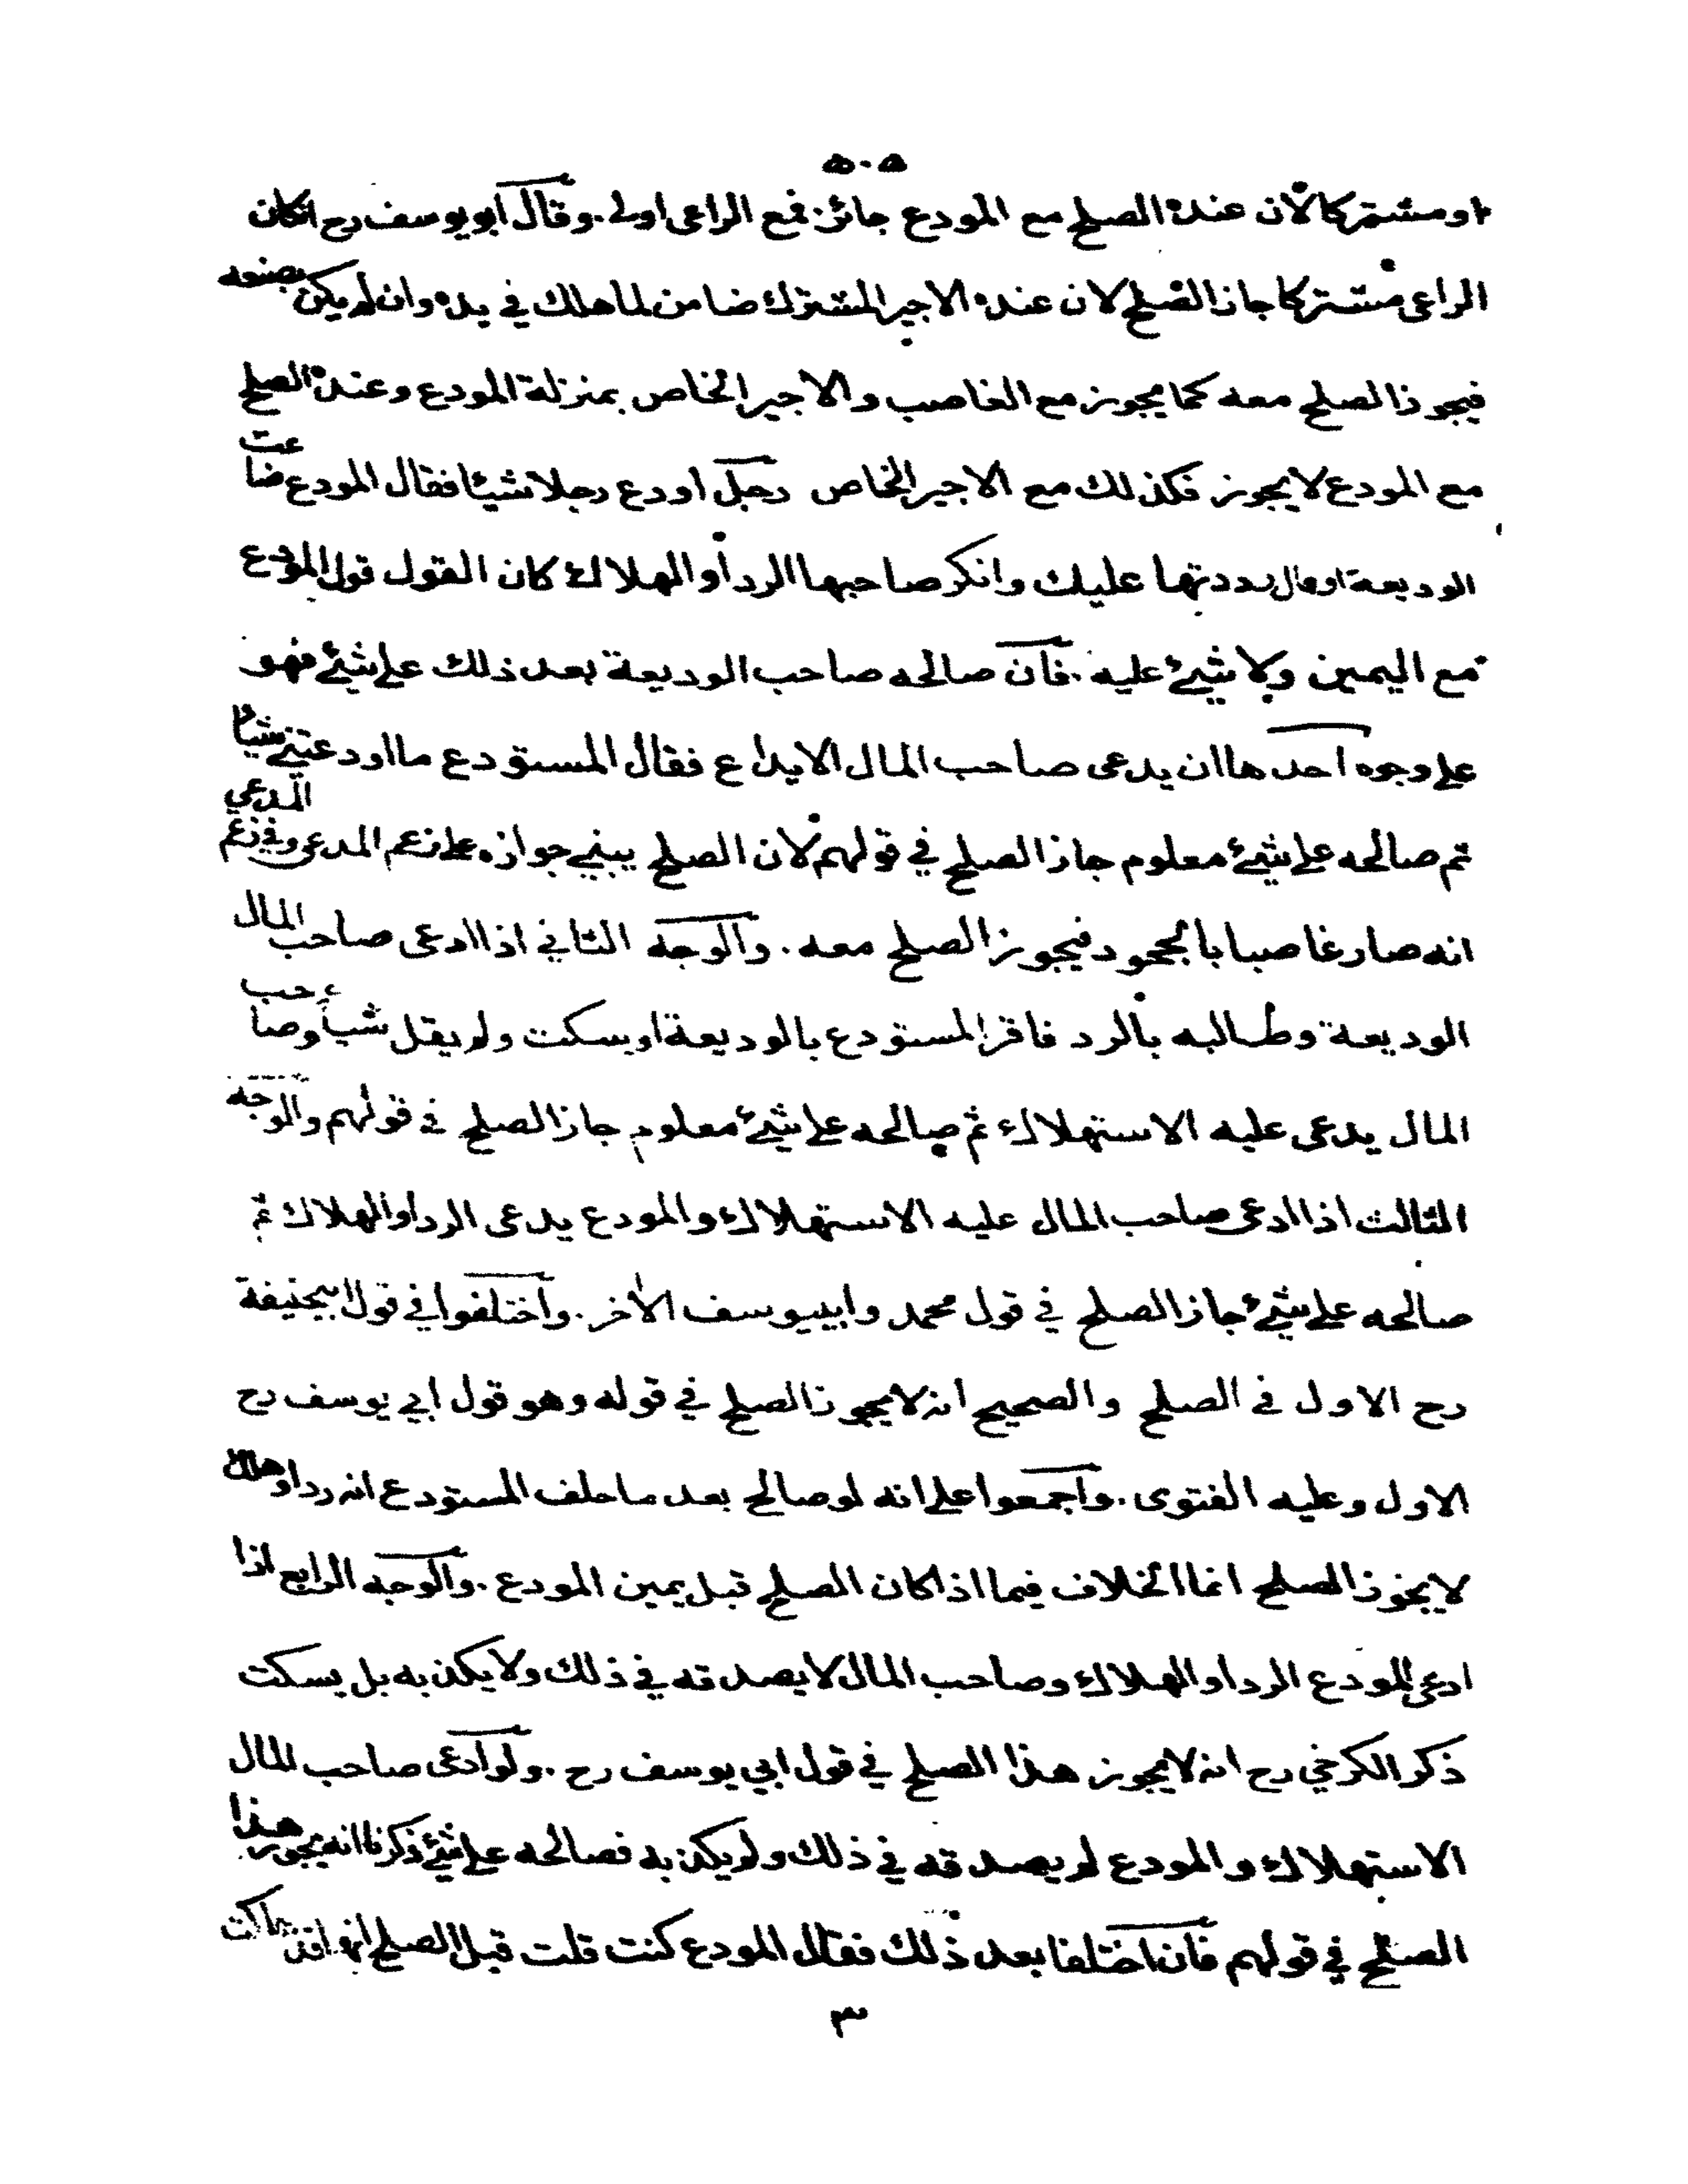 ٥٠٥
او مشتركا لان عنده الصلح مع المودع جائز فمع الراعى اولى. وقال ابو يوسف رح انكان
الراعى مشتركا جاز الصلح لان عنده الاجير المشترك ضامن لما هلك في يده وان لم يكن بصنعه
فيجوز الصلح معه كما يجوز مع الغاصب والاجير الخاص بمنزلة المودع وعنده الصلح
مع المودع لا يجوز فكذلك مع الاجير الخاص رجل اودع رجلا شيئا فقال المودع ضاعت
الوديعة او قال رددتها عليك وانكر صاحبها الرد او الهلاك كان القول قول المودع
مع اليمين ولا شيئ عليه. فان صالحه صاحب الوديعة بعد ذلك على شيئ فهو
على وجوه احدها ان يدعى صاحب المال الايداع فقال المستودع ما اودعتني شيأ
ثم صالحه على شيئ معلوم جاز الصلح في قولهم لان الصلح يبني جوازه على زعم المدعى وفي زعم المدعي
انه صار غاصبا بالجحود فيجوز الصلح معه. والوجه الثاني اذا ادعى صاحب المال
الوديعة وطالبه بالرد فاقر المستودع بالوديعة او سكت ولم يقل شيأ وصاحب
المال يدعى عليه الاستهلاك ثم صالحه على شيئ معلوم جاز الصلح في قولهم والوجه
الثالث اذا ادعى صاحب المال عليه الاستهلاك والمودع يدعى الرد او الهلاك ثم
صالحه على شيئ جاز الصلح في قول محمد وابييوسف الاخر. واختلفوا في قول ابيحنيفة
رح الاول فى الصلح والصحيح انه لا يجوز الصلح في قوله وهو قول ابي يوسف رح
الاول وعليه الفتوى. واجمعوا على انه لو صالح بعد ما حلف المستودع انه رد او هلك
لا يجوز الصلح انما الخلاف فيما اذا كان الصلح قبل يمين المودع. والوجه الرابع اذا
ادعى المودع الرد او الهلاك وصاحب المال لا يصدقه في ذلك ولا يكذبه بل يسكت
ذكر الكرخي رح انه لا يجوز هذا الصلح في قول ابي يوسف رح. ولو ادعى صاحب المال
الاستهلاك والمودع لم يصدقه في ذلك ولم يكذبه فصالحه على شيئ ذكرنا انه يجوز هذا
الصلح في قولهم فان اختلفا بعد ذلك فقال المودع كنت قلت قبل الصلح انها قد هلكت
٣